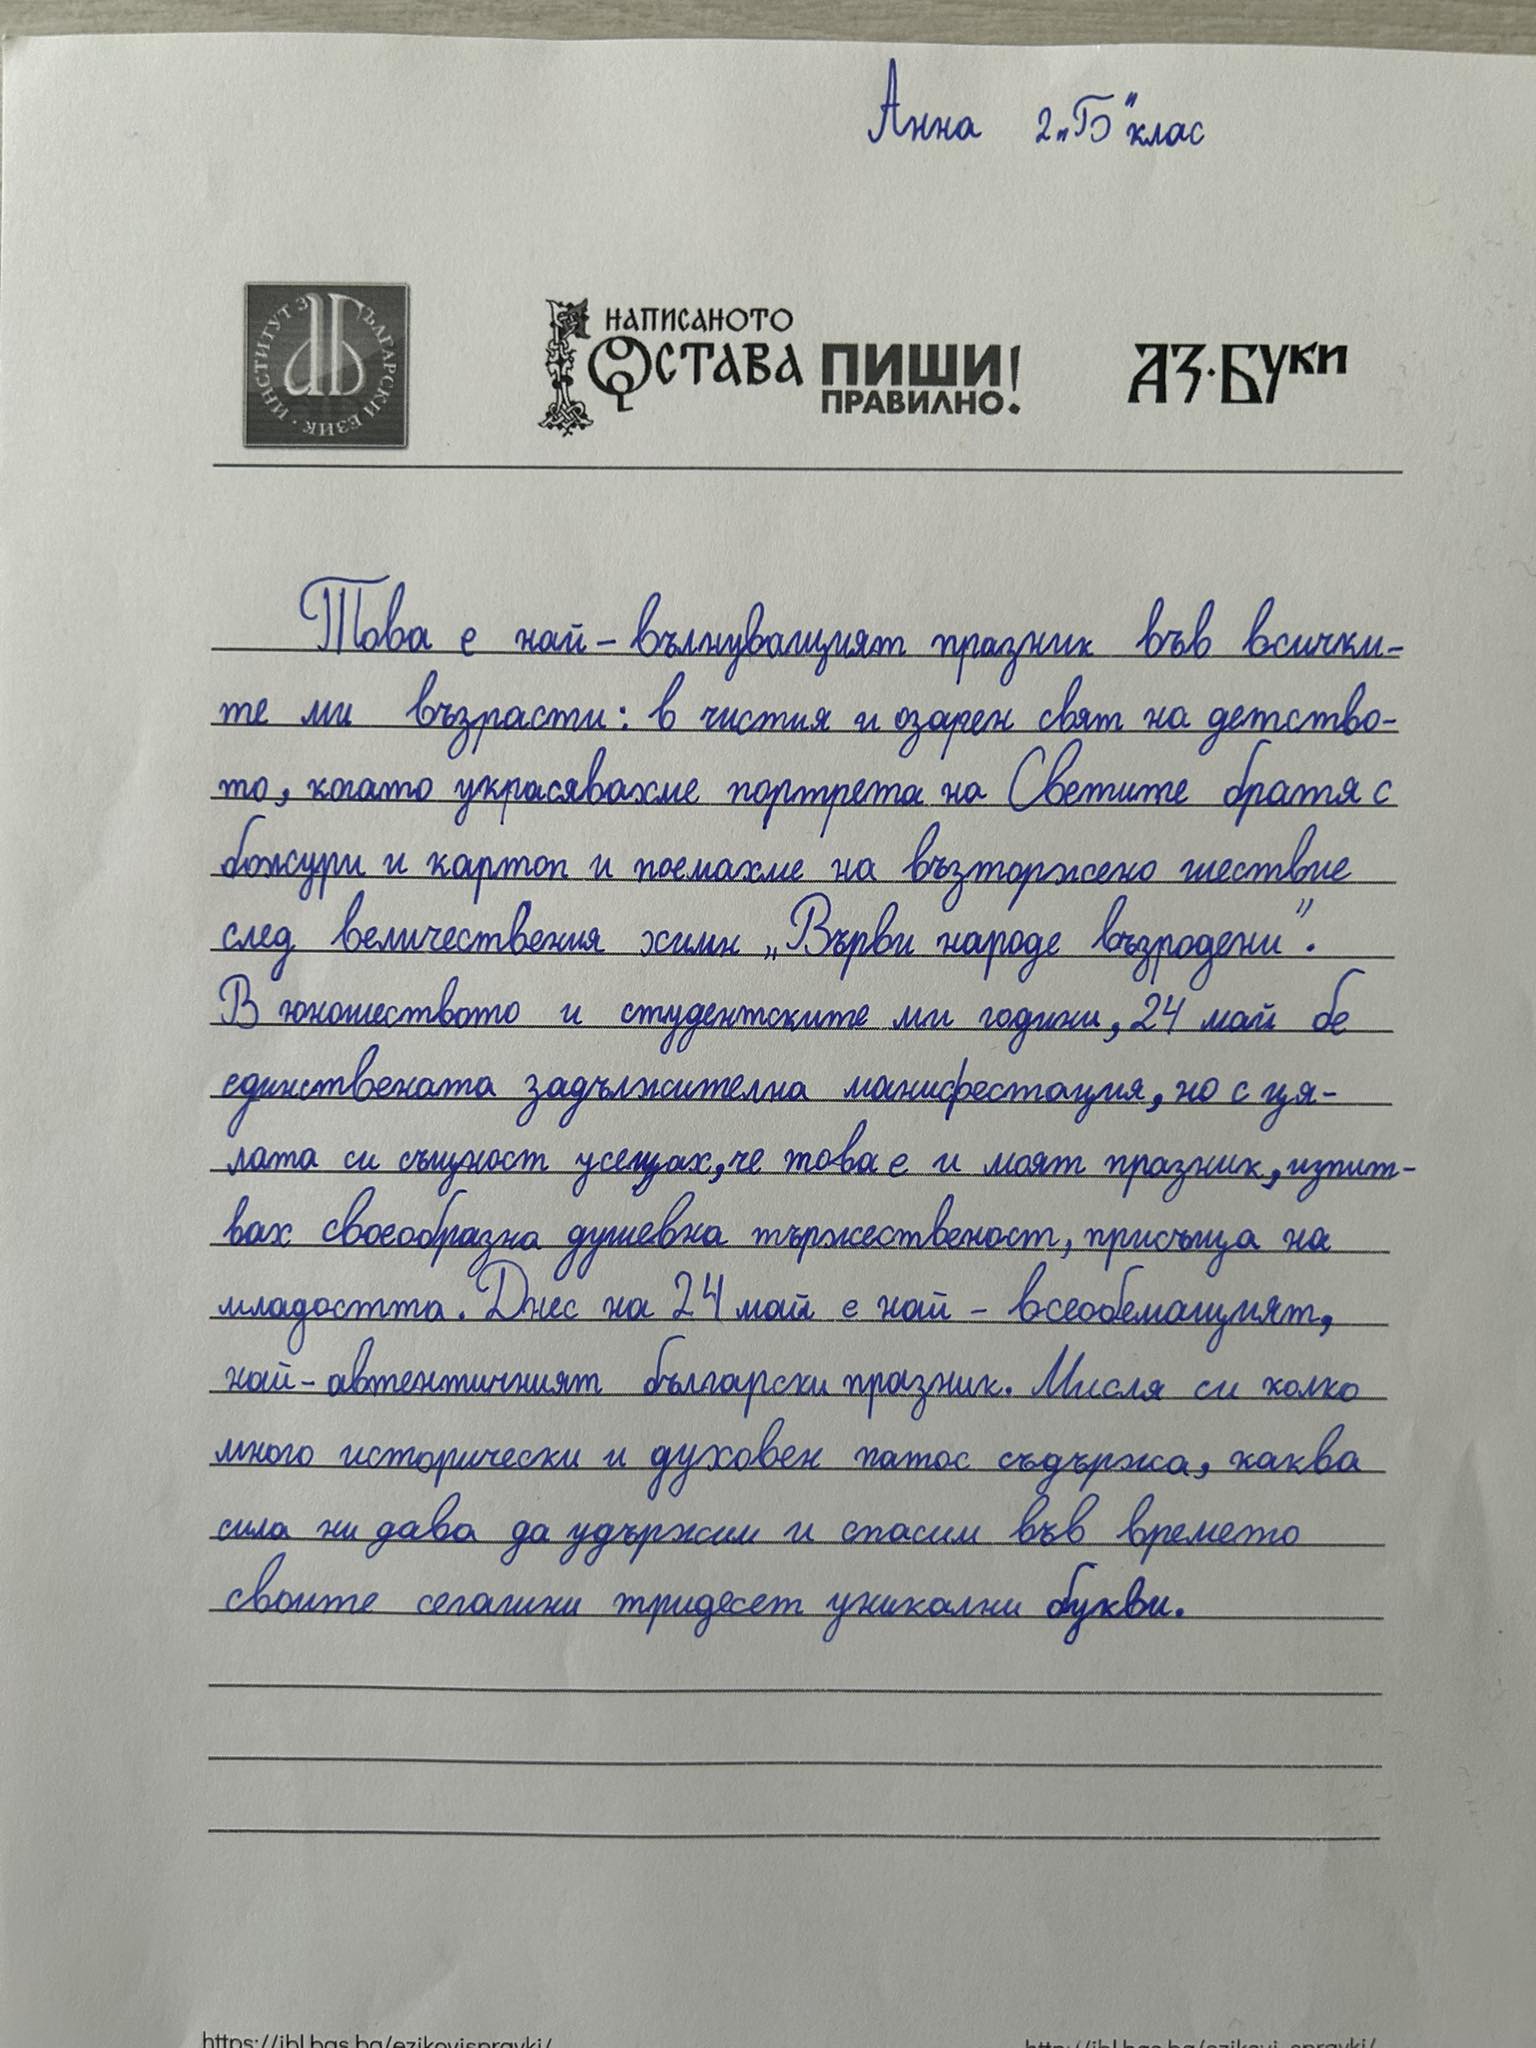 Анна 2 „Б" клас
ИНСТИТУТ ЗА БЪЛГАРСКИ ЕЗИК
НАПИСАНОТО
ОСТАВА ПИШИ
ПРАВИЛНО!
АЗ·БУКИ
Това е най-вълнуващият празник във всички-
те ми възрасти: в чистия и озарен свят на детство-
то, когато украсявахме портрета на Светите братя с
божури и картоп и поемахме на възторжено шествие
след величествения химн „Върви народе възродени".
В юношеството и студентските ми години, 24 май бе
единствената задължителна манифестация, но с ця-
лата си същност усещах, че това е и моят празник, изпит-
вах своеобразна душевна тържественост, присъща на
младостта. Днес на 24 май е най - всеобемащият,
най-автентичният български празник. Мисля си колко
много исторически и духовен патос съдържа, каква
сила ни дава да удържим и спасим във времето
своите сегашни тридесет уникални букви.
https://ibl.bas.bg/ezikovispravki/ http://ibl.bas.bg/ezikovi_spravki/